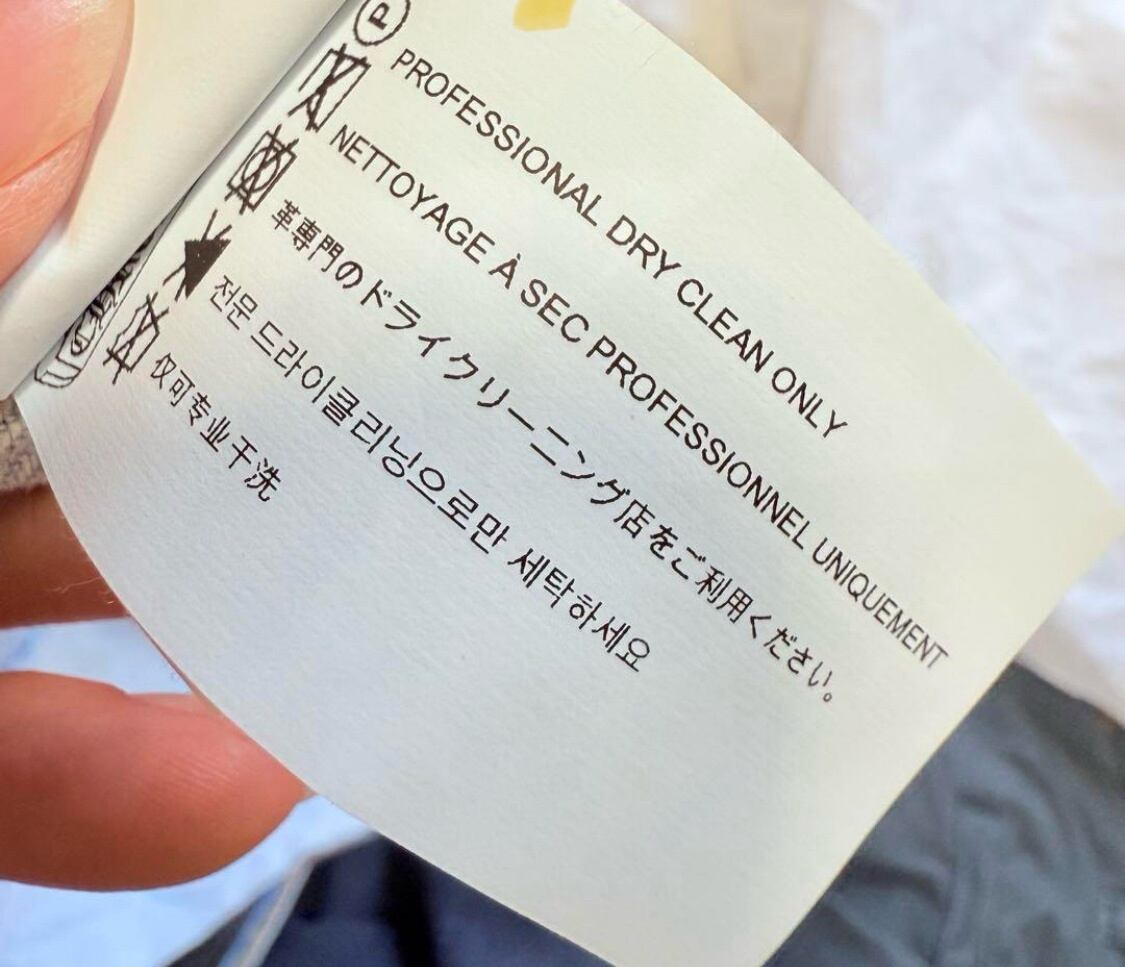 P
PROFESSIONAL DRY CLEAN ONLY
NETTOYAGE À SEC PROFESSIONNEL UNIQUEMENT
革専門のドライクリーニング店をご利用ください。
전문 드라이클리닝으로만 세탁하세요
仅可专业干洗